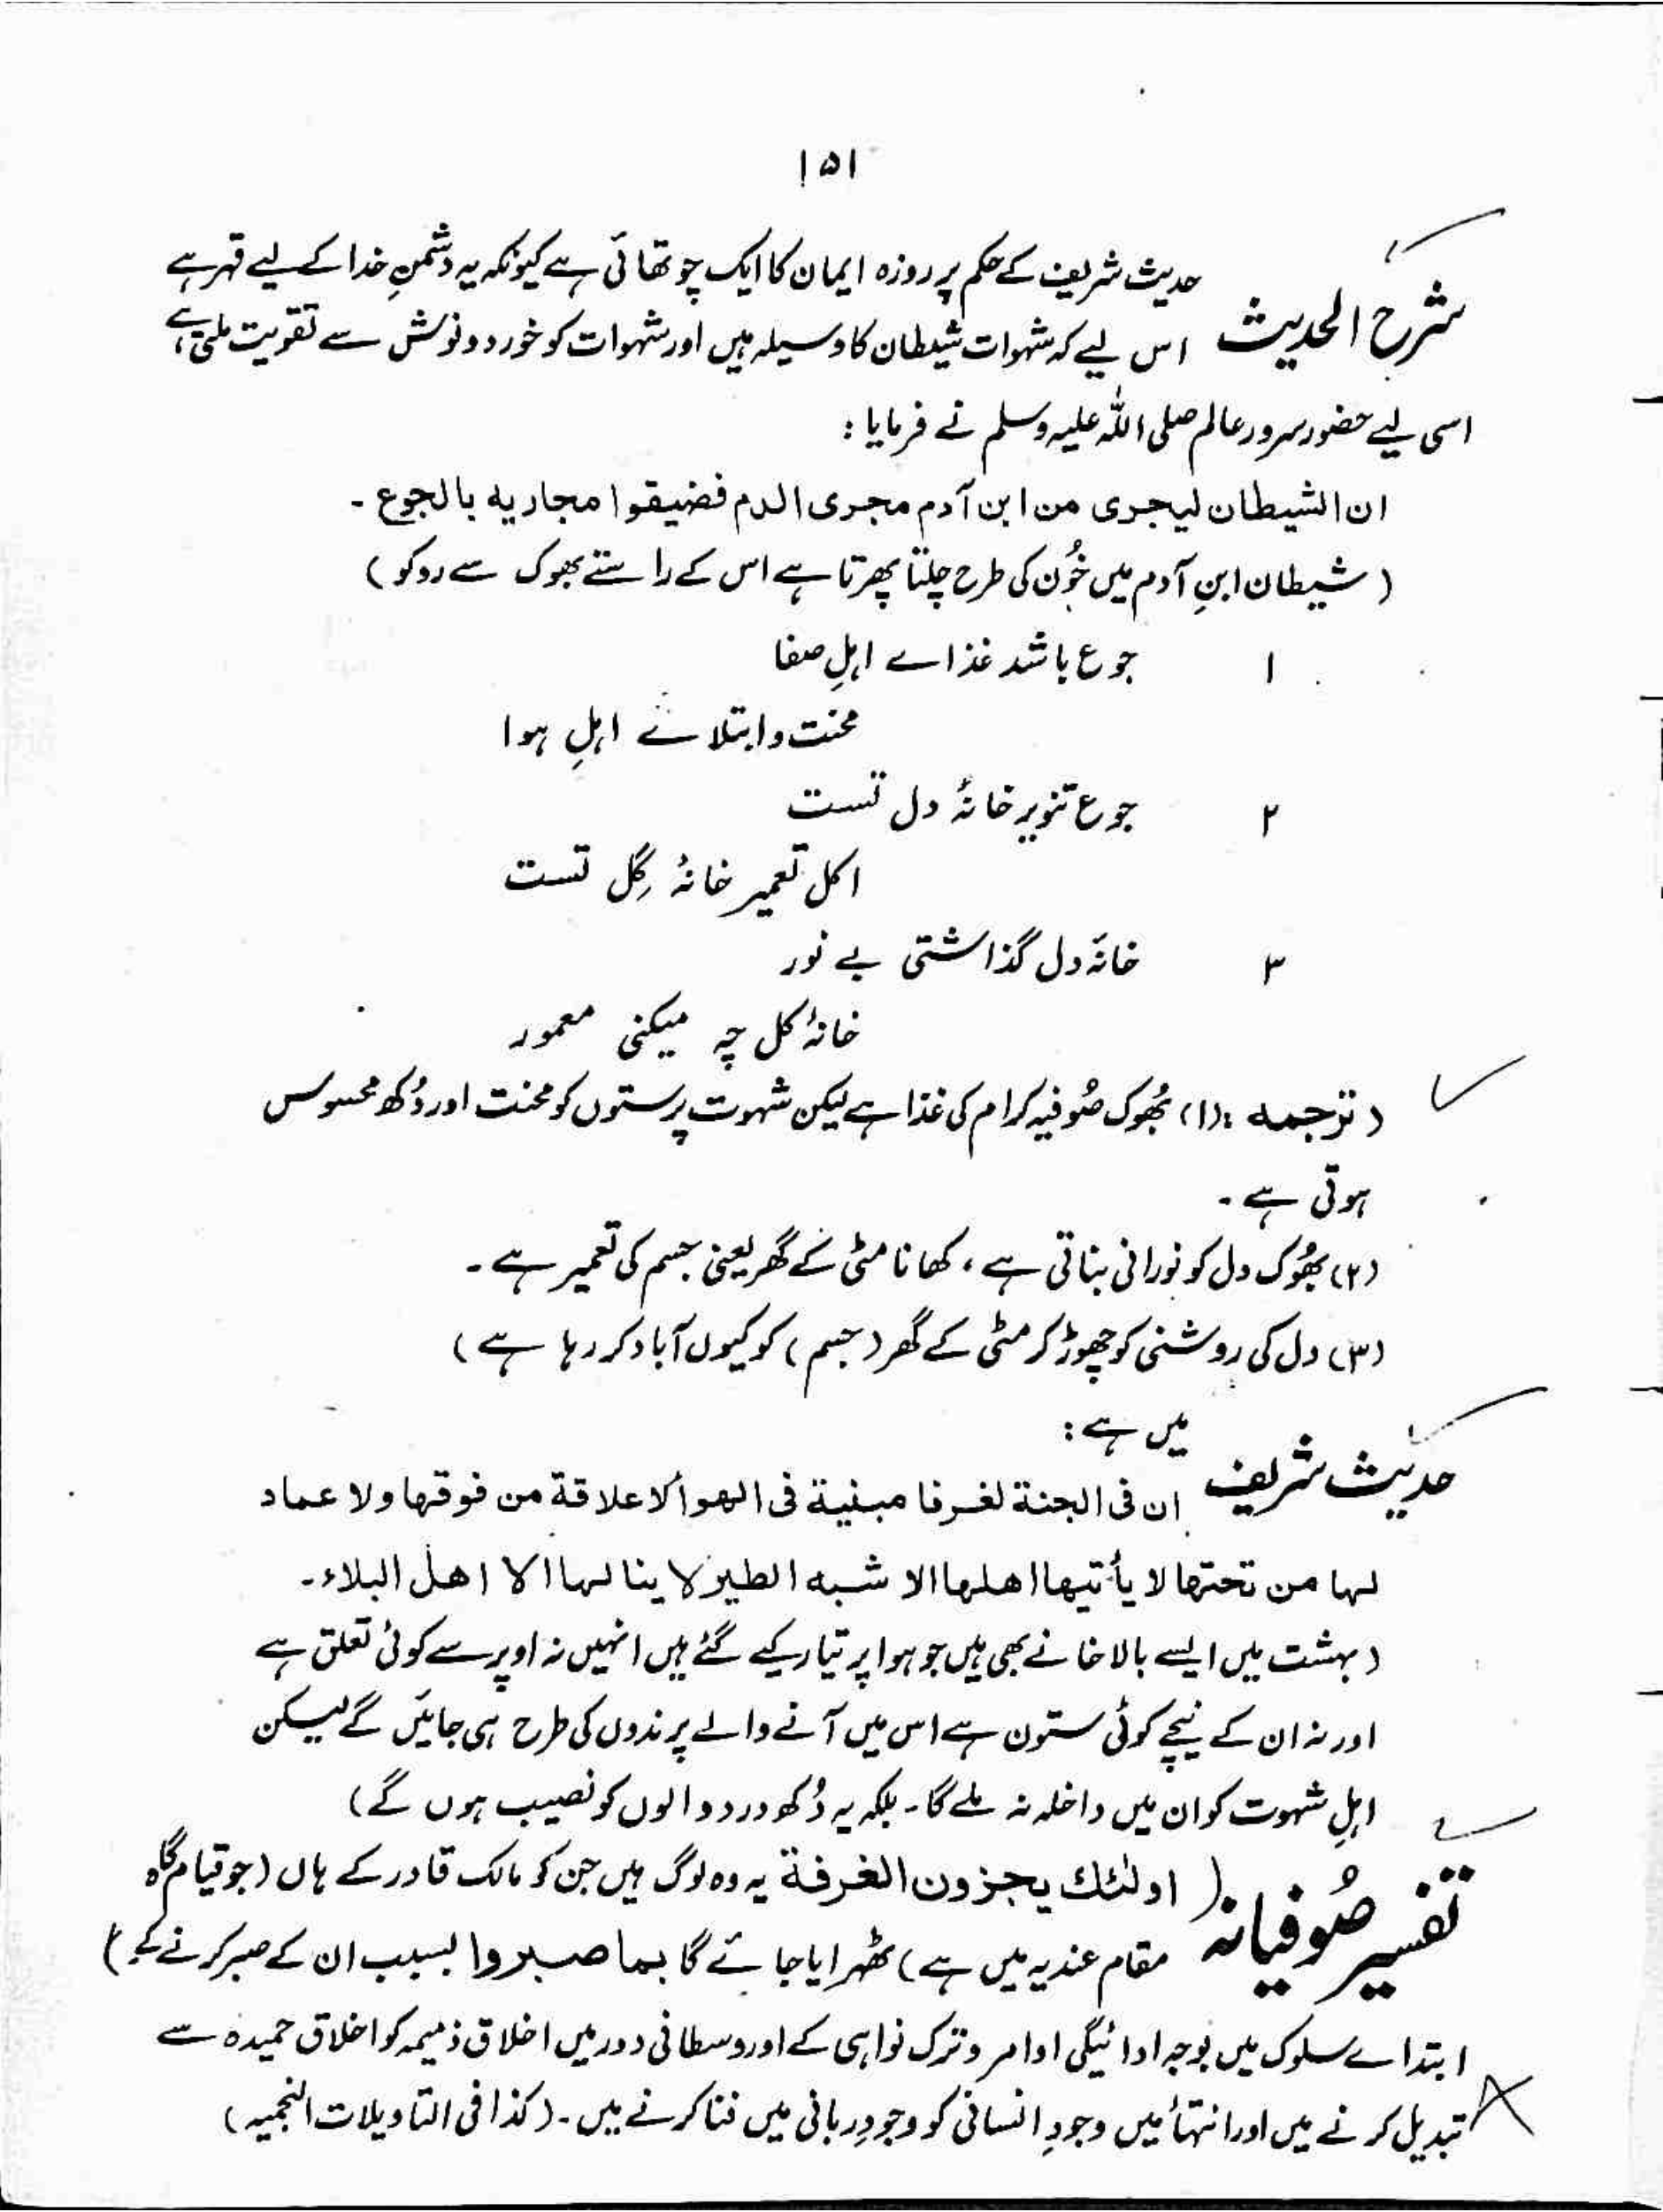 ۱۵۱
شرح الحدیث حدیث شریف کے حکم پر روزہ ایمان کا ایک چوتھائی ہے کیونکہ یہ دشمنِ خدا کے لیے قہر ہے
اس لیے کہ شہوات شیطان کا وسیلہ ہیں اور شہوات کو خورد و نوش سے تقویت ملتی ہے
اسی لیے حضور سرور عالم صلی اللہ علیہ وسلم نے فرمایا :
ان الشیطان لیجری من ابن آدم مجری الدم فضیقوا مجاریه بالجوع ۔
( شیطان ابنِ آدم میں خُون کی طرح چلتا پھرتا ہے اس کے راستے بھوک سے روکو )
۱ جوع باشد غذاے اہلِ صفا
محنت و ابتلائے اہلِ ہوا
۲ جوع تنویر خانۂ دل تست
اکل تعمیر خانۂ گِل تست
۳ خانۂ دل گذاشتی بے نور
خانۂ کل چہ میکنی معمور
( ترجمه :(۱) بُھوک صُوفیہ کرام کی غذا ہے لیکن شہوت پرستوں کو محنت اور دُکھ محسوس
ہوتی ہے ۔
(۲) بُھوک دل کو نورانی بناتی ہے ، کھانا مٹی کے گھر یعنی جسم کی تعمیر ہے ۔
(۳) دل کی روشنی کو چھوڑ کر مٹی کے گھر ( جسم ) کو کیوں آباد کر رہا ہے )
حدیث شریف میں ہے :
ان فی الجنة لغرفا مبنیة فی الهوأ لا علاقة من فوقها ولا عماد
لها من تحتها لا یأتیها اهلها الا شبه الطیر لا ینالها الا اهل البلاء۔
( بہشت میں ایسے بالاخانے بھی ہیں جو ہوا پر تیار کیے گئے ہیں انہیں نہ اوپر سے کوئی تعلق ہے
اور نہ ان کے نیچے کوئی ستون ہے اس میں آنے والے پرندوں کی طرح ہی جائیں گے لیکن
اہلِ شہوت کو ان میں داخلہ نہ ملے گا ۔ بلکہ یہ دُکھ درد والوں کو نصیب ہوں گے )
تفسیر صُوفیانہ ( اولٰئك یجزون الغرفة یہ وہ لوگ ہیں جن کو مالک قادر کے ہاں ( جو قیام گاہ
مقام عندیہ میں ہے ) ٹھہرایا جائے گا بما صبروا بسبب ان کے صبر کرنے کے )
ابتداے سلوک میں بوجہ ادائیگی اوامر و ترک نواہی کے اور وسطانی دور میں اخلاق ذمیمہ کو اخلاق حمیدہ سے
تبدیل کرنے میں اور انتہأ میں وجودِ انسانی کو وجودِ ربانی میں فنا کرنے میں ۔ ( کذا فی التاویلات النجمیہ )